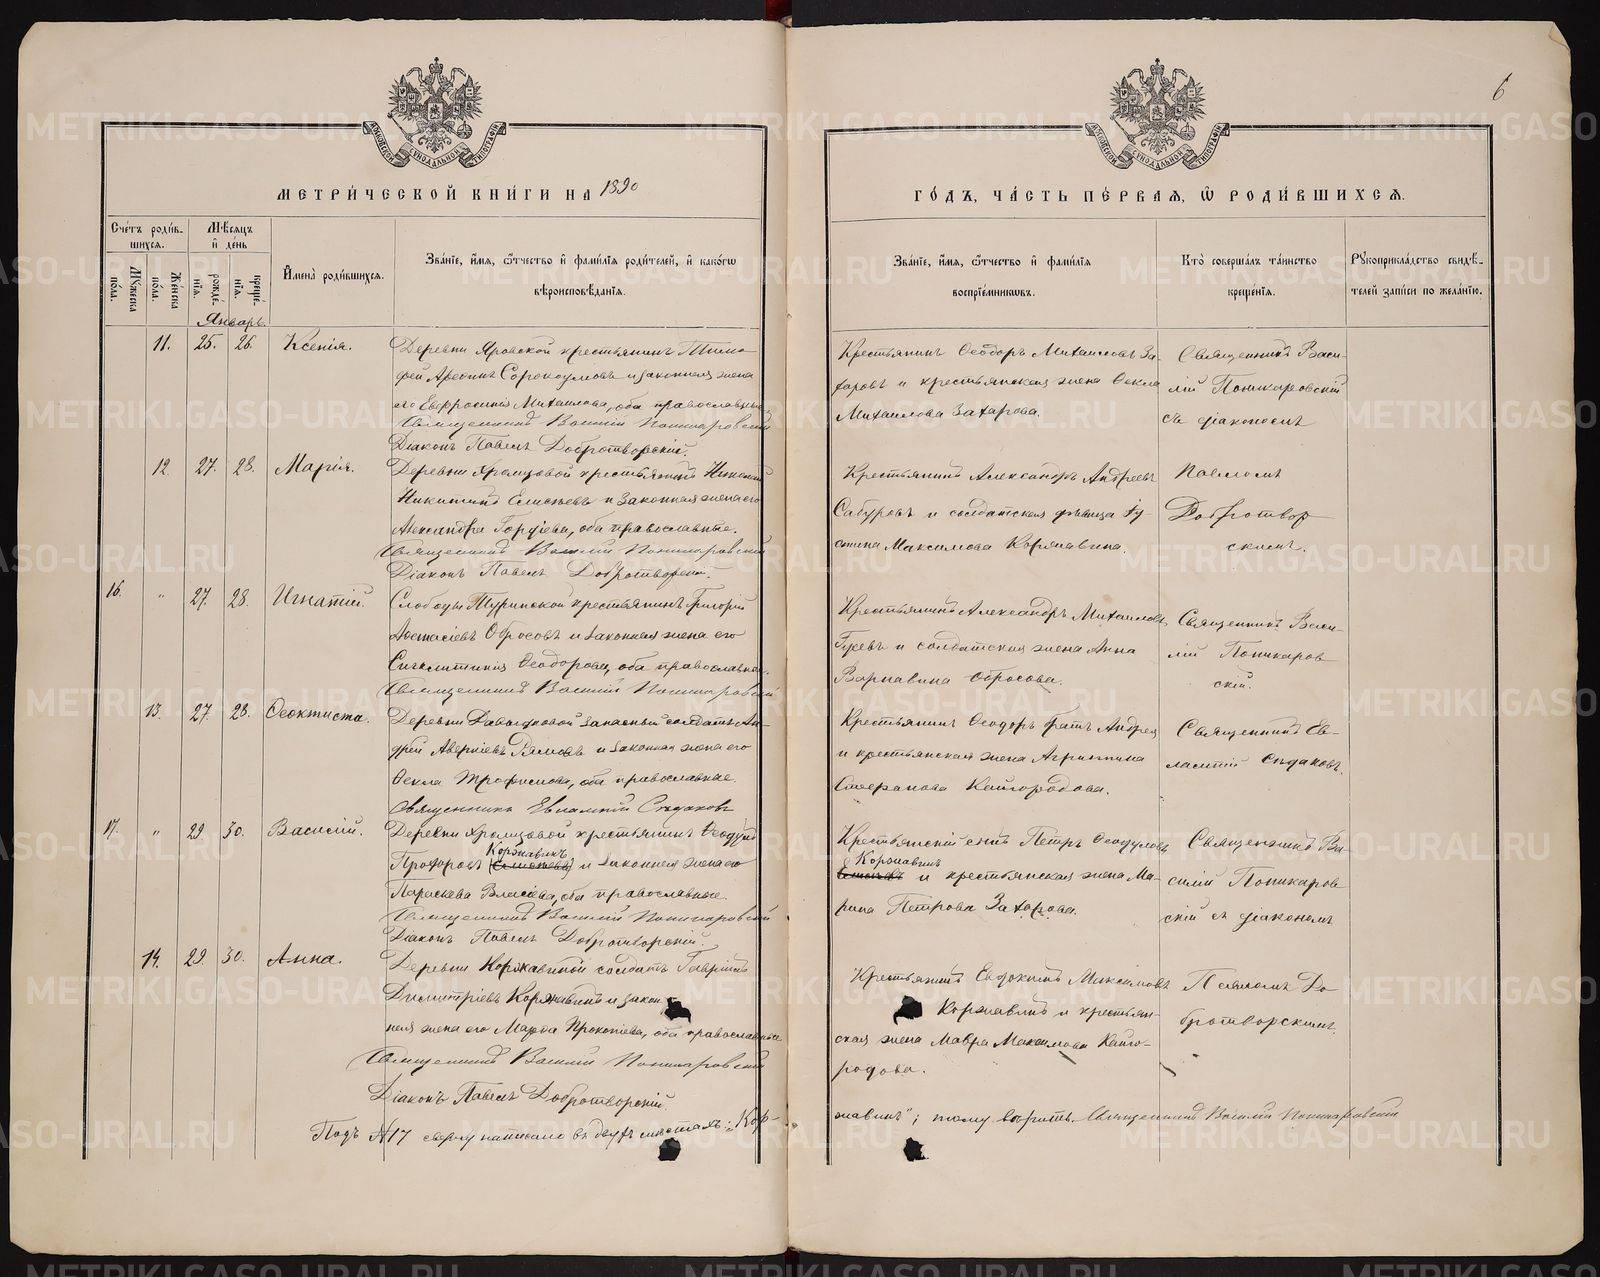 6
МЕТРИ́ЧЕСКОЙ КНИ́ГИ НА 1890
ГО́ДЪ, ЧА́СТЬ ПЕ́РВАЯ, Ѡ РОДИ́ВШИХСѦ.
Сче́тъ роди́в-
шихсѧ.
Мѣ́сѧцъ
и҆ де́нь
Мꙋ́жеска
по́ла.
Же́нска
по́ла.
рожде́-
нїѧ.
креще́-
нїѧ.
И҆мена̀ роди́вшихсѧ.
Зва́нїе, и҆́мѧ, ѻ҆́тчество и҆ фами́лїѧ роди́телей, и҆ како́гѡ
вѣроисповѣ́данїѧ.
Зва́нїе, и҆́мѧ, ѻ҆́тчество и҆ фами́лїѧ
воспрїе́мникѡвъ.
Кто̀ соверша́лъ та́инство
креще́нїѧ.
Рꙋкоприкла́дство свидѣ́-
телей за́писи по жела́нїю.
Январь.
11. 25. 26. Ксенія.
Деревни Яровской крестьянинъ Тимо-
фей Сорокоумовъ и законная жена
его Евфросинія Михаилова, оба православные
Священникъ Василій Поникаровскій
Діаконъ Павелъ Добротворскій.
Крестьянинъ Ѳеодоръ Михаиловъ За-
харовъ и крестьянская жена Ѳекла
Михаилова Захарова.
Священникъ Васи-
лій Поникаровскій
съ діакономъ
12. 27. 28. Марія.
Деревни Храмцовой крестьянинъ
Никитинъ Елисѣевъ и законная жена его
Александра Гордіева, оба православные.
Священникъ Василій Поникаровскій
Діаконъ Павелъ Добротворскій.
Крестьянинъ Александръ Андреевъ
Сабуровъ и солдатская дѣвица Іу-
стина Максимова Коржавина.
Павломъ
Добротвор
скимъ.
16. " 27. 28. Игнатій.
Слободы Туринской крестьянинъ Григорій
Обросовъ и законная жена его
Синклитикія Ѳеодорова, оба православные
Священникъ Василій Поникаровскій
Крестьянинъ Александръ Михаиловъ
и солдатская жена Анна
Варнавина Обросова.
Священникъ Васи-
лій Поникаров
скій.
13. 27. 28. Ѳеоктиста.
Деревни Давыдковой запасный солдатъ Ан-
дрей Аверкіевъ и законная жена его
Ѳекла Трофимова, оба православные.
Священникъ Евлампій Сѣдаковъ
Крестьянинъ Ѳеодоръ братъ Андрея
и крестьянская жена Агрипина
Стефанова Кайгородова.
Священникъ Ев-
лампій Сѣдаковъ.
17. " 29. 30. Василій.
Деревни Храмцовой крестьянинъ Ѳеодулъ
Коржавинъ
Прохоровъ (Елисѣевъ) и законная жена его
Параскева Власіева, оба православные.
Священникъ Василій Поникаровскій
Діаконъ Павелъ Добротворскій.
Крестьянскій сынъ Петръ Ѳеодуловъ
Коржавинъ
Елисѣевъ и крестьянская жена Ма-
рина Петрова Захарова.
Священникъ Ва-
силій Поникаров
скій съ діакономъ
14. 29. 30. Анна.
Деревни Коржавиной солдатъ Гавріилъ
Димитріевъ Коржавинъ и закон
ная жена его Марѳа Прокопіева, оба православные
Священникъ Василій Поникаровскій
Діаконъ Павелъ Добротворскій.
Крестьянинъ Евдокимъ Максимовъ
Коржавинъ и крестьян-
ская жена Мавра Максимова Кайго-
родова.
Павломъ До
бротворскимъ.
Подъ №17 сверху написано въ двухъ мѣстахъ: „Кор-
жавинъ"; тому вѣрить. Священникъ Василій Поникаровскій